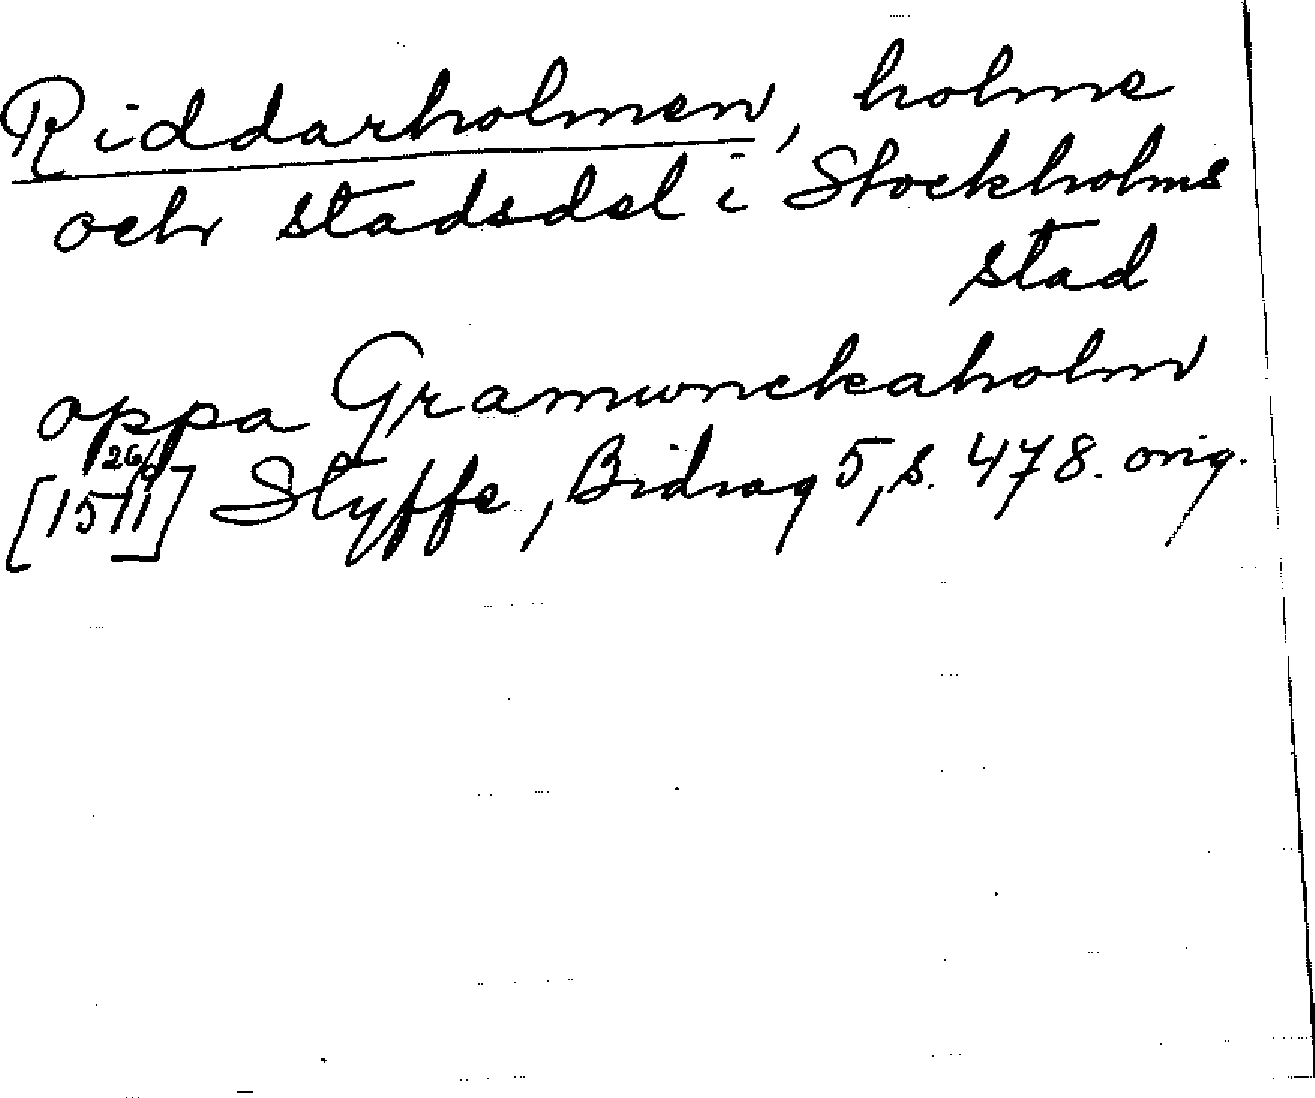 Riddarholmen, holme
och stadsdel i Stockholms
stad
oppa Gramwnckaholm
26/9
[1511] Styffe, Bidrag 5, s. 478. orig.